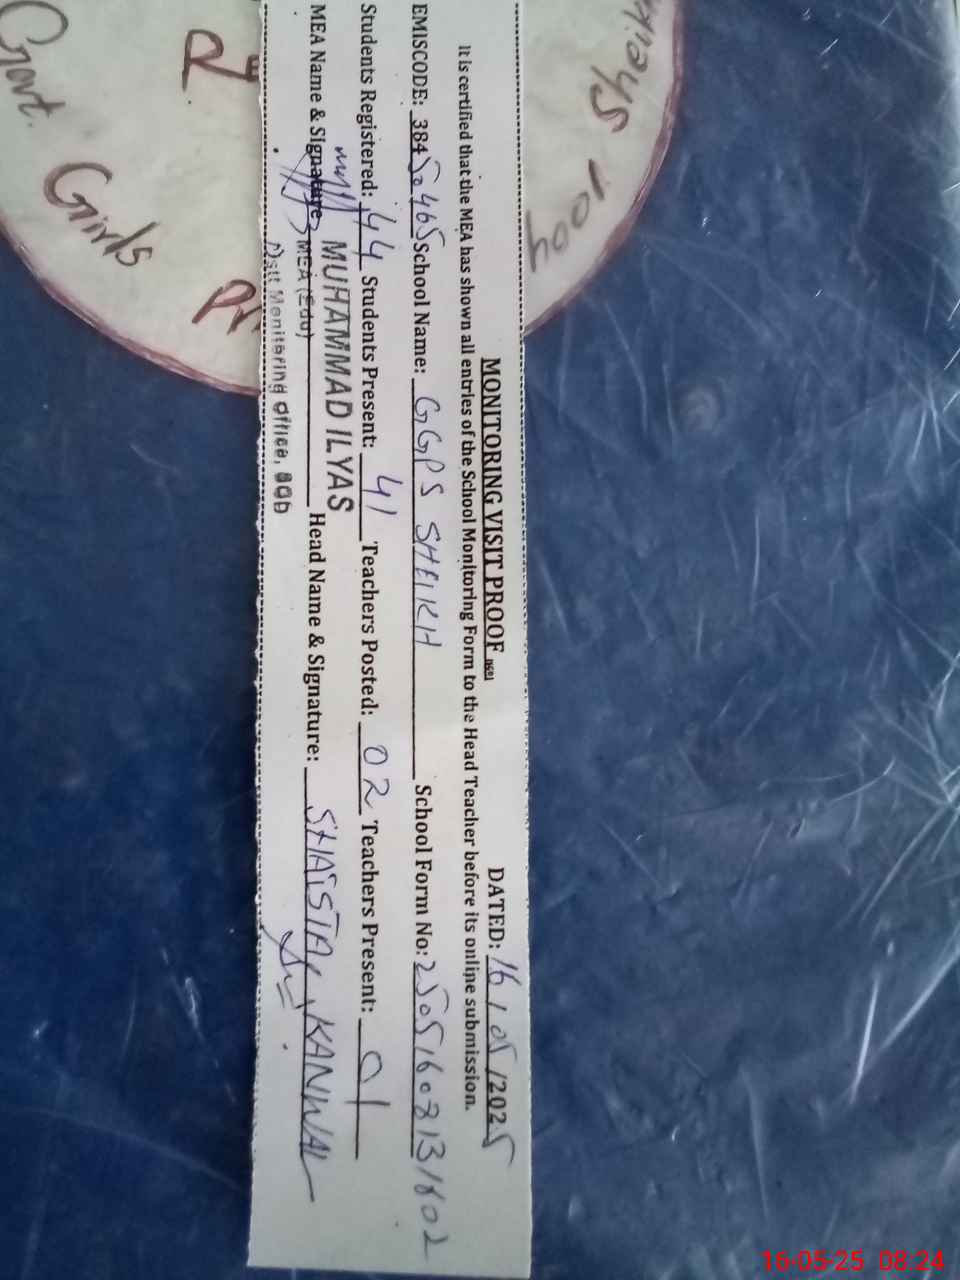 MONITORING VISIT PROOF DATED: 16/05/2025
It is certified that the MEA has shown all entries of the School Monitoring Form to the Head Teacher before its online submission.
EMISCODE: 38450465 School Name: GGPS SHEIKH School Form No: 25051608131802
Students Registered: 44 Students Present: 41 Teachers Posted: 02 Teachers Present: 01
MEA Name & Signature MUHAMMAD ILYAS Head Name & Signature: SHAISTA KANWAL
MEA (Edu)
Dstt Monitoring office,
Govt.
Girls
16-05-25 08:24